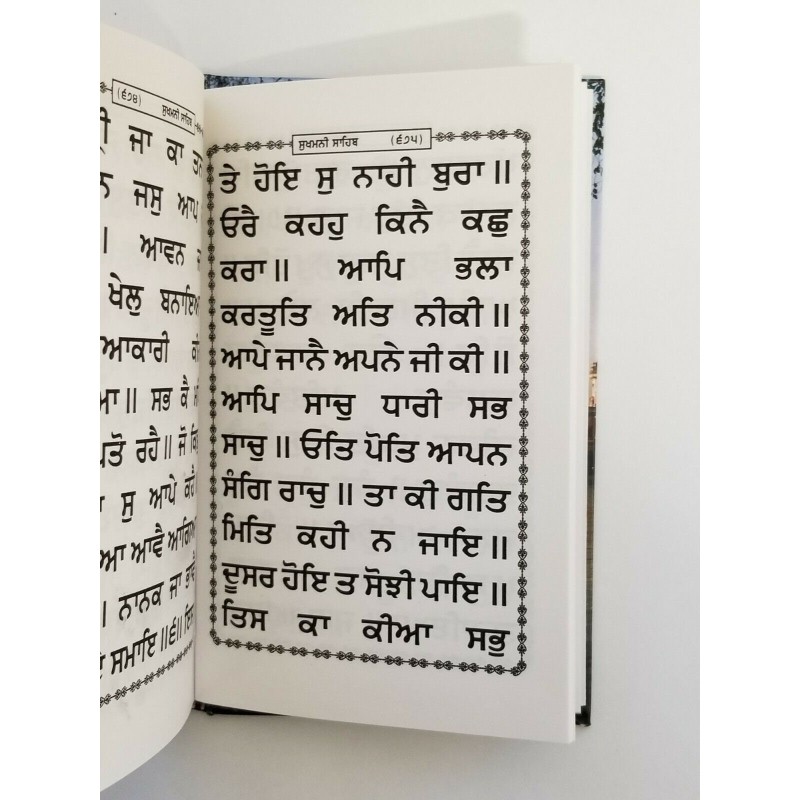 (੬੭੪) ਸੁਖਮਨੀ ਸਾਹਿਬ
ਜਾ ਕਾ ਤਨ
ਜਸੁ ਆਪ
। ਆਵਨ
ਖੇਲੁ ਬਨਾਇਆ
ਆਕਾਰੀ
॥ ਸਭ ਕੈ
ਰਹੈ। ਜੋ
ਸੁ ਆਪੇ ਕਰੈ
ਆਵੈ ਆਗਿਆ
। ਨਾਨਕ ਜਾ ਭਾਵੈ
ਸਮਾਇ॥੬॥ ਇਸ
ਸੁਖਮਨੀ ਸਾਹਿਬ (੬੭੫)
ਤੇ ਹੋਇ ਸੁ ਨਾਹੀ ਬੁਰਾ॥
ਓਰੈ ਕਹਹੁ ਕਿਨੈ ਕਛੁ
ਕਰਾ॥ ਆਪਿ ਭਲਾ
ਕਰਤੂਤਿ ਅਤਿ ਨੀਕੀ॥
ਆਪੇ ਜਾਨੈ ਅਪਨੇ ਜੀ ਕੀ॥
ਆਪਿ ਸਾਚੁ ਧਾਰੀ ਸਭ
ਸਾਚੁ॥ ਓਤਿ ਪੋਤਿ ਆਪਨ
ਸੰਗਿ ਰਾਚੁ॥ ਤਾ ਕੀ ਗਤਿ
ਮਿਤਿ ਕਹੀ ਨ ਜਾਇ॥
ਦੂਸਰ ਹੋਇ ਤ ਸੋਝੀ ਪਾਇ॥
ਤਿਸ ਕਾ ਕੀਆ ਸਭੁ